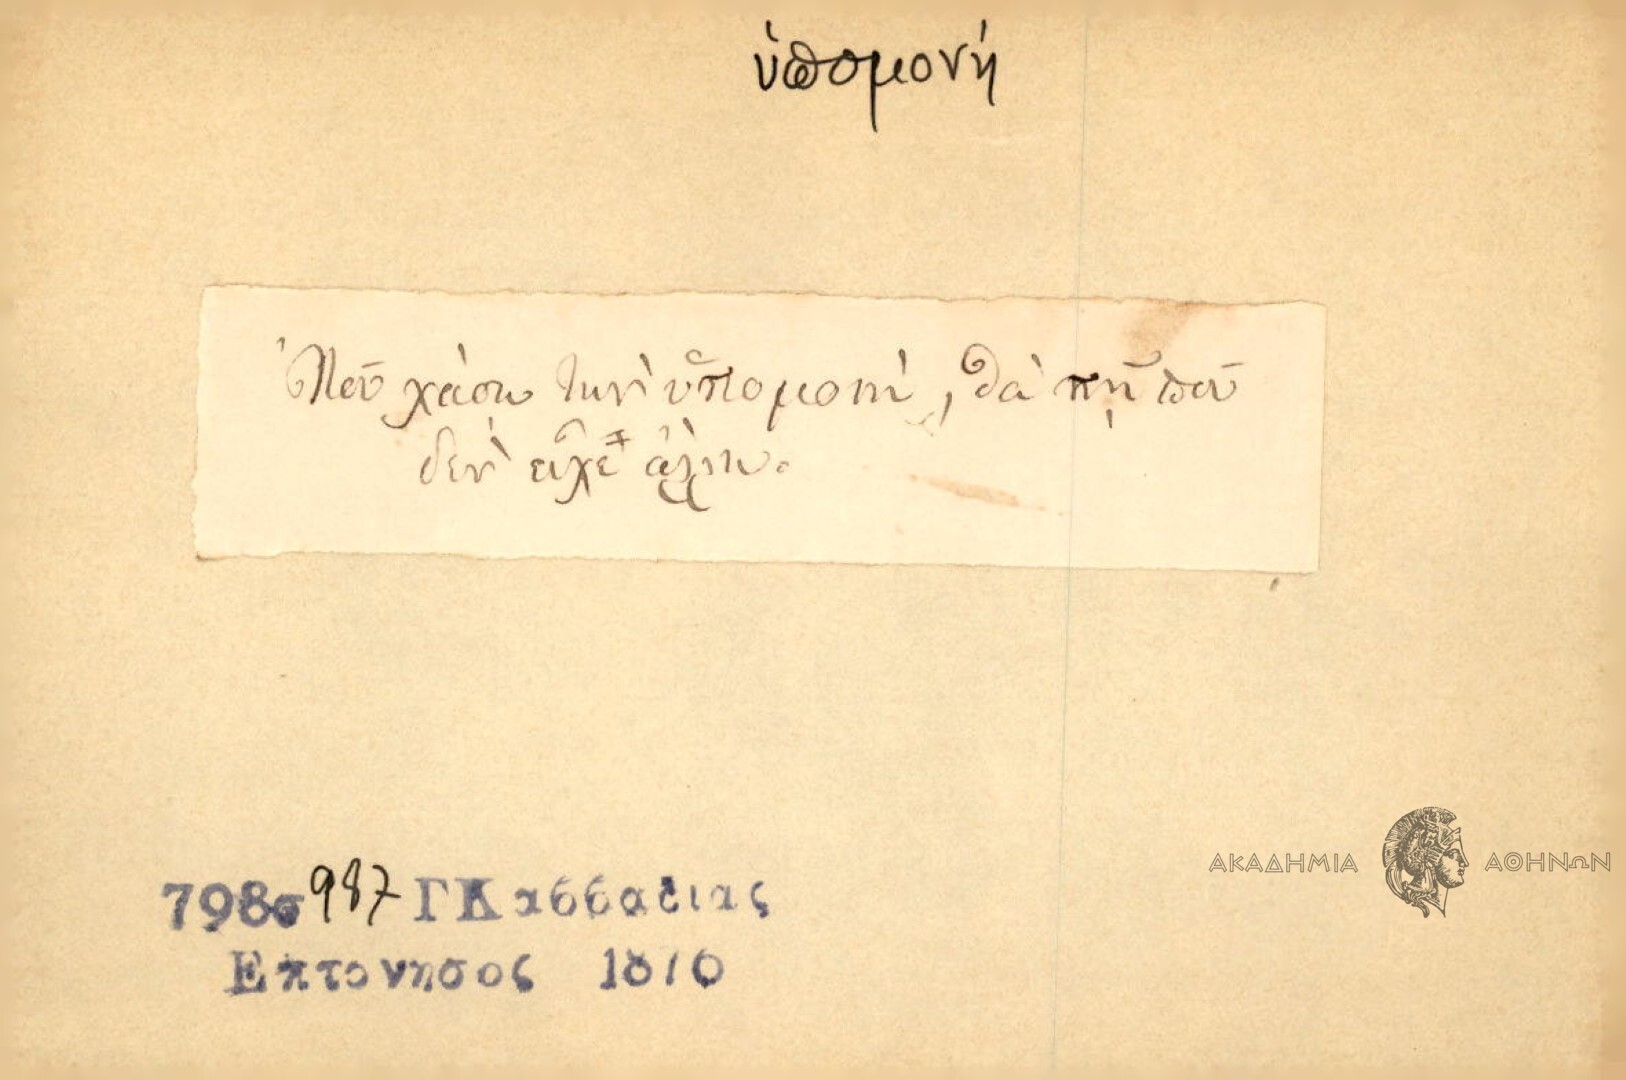 ὑπομονή
Ὁποῦ χάσῃ τὴν ὑπομονὴ, θὰ πῇ ποῦ
δὲν εἶχε ἄλλη.
798σ 987 ΓΚασσαδιας
Επτονησος 1876
ΑΚΑΔΗΜΙΑ ΑΘΗΝΩΝ